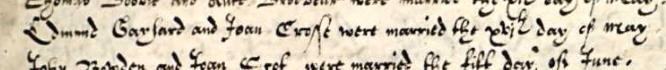 and were married the day of may
Edmund Garrard and Joan Crosse were married the xvith day of may
John Bowden and Joan were married the fift day of June.